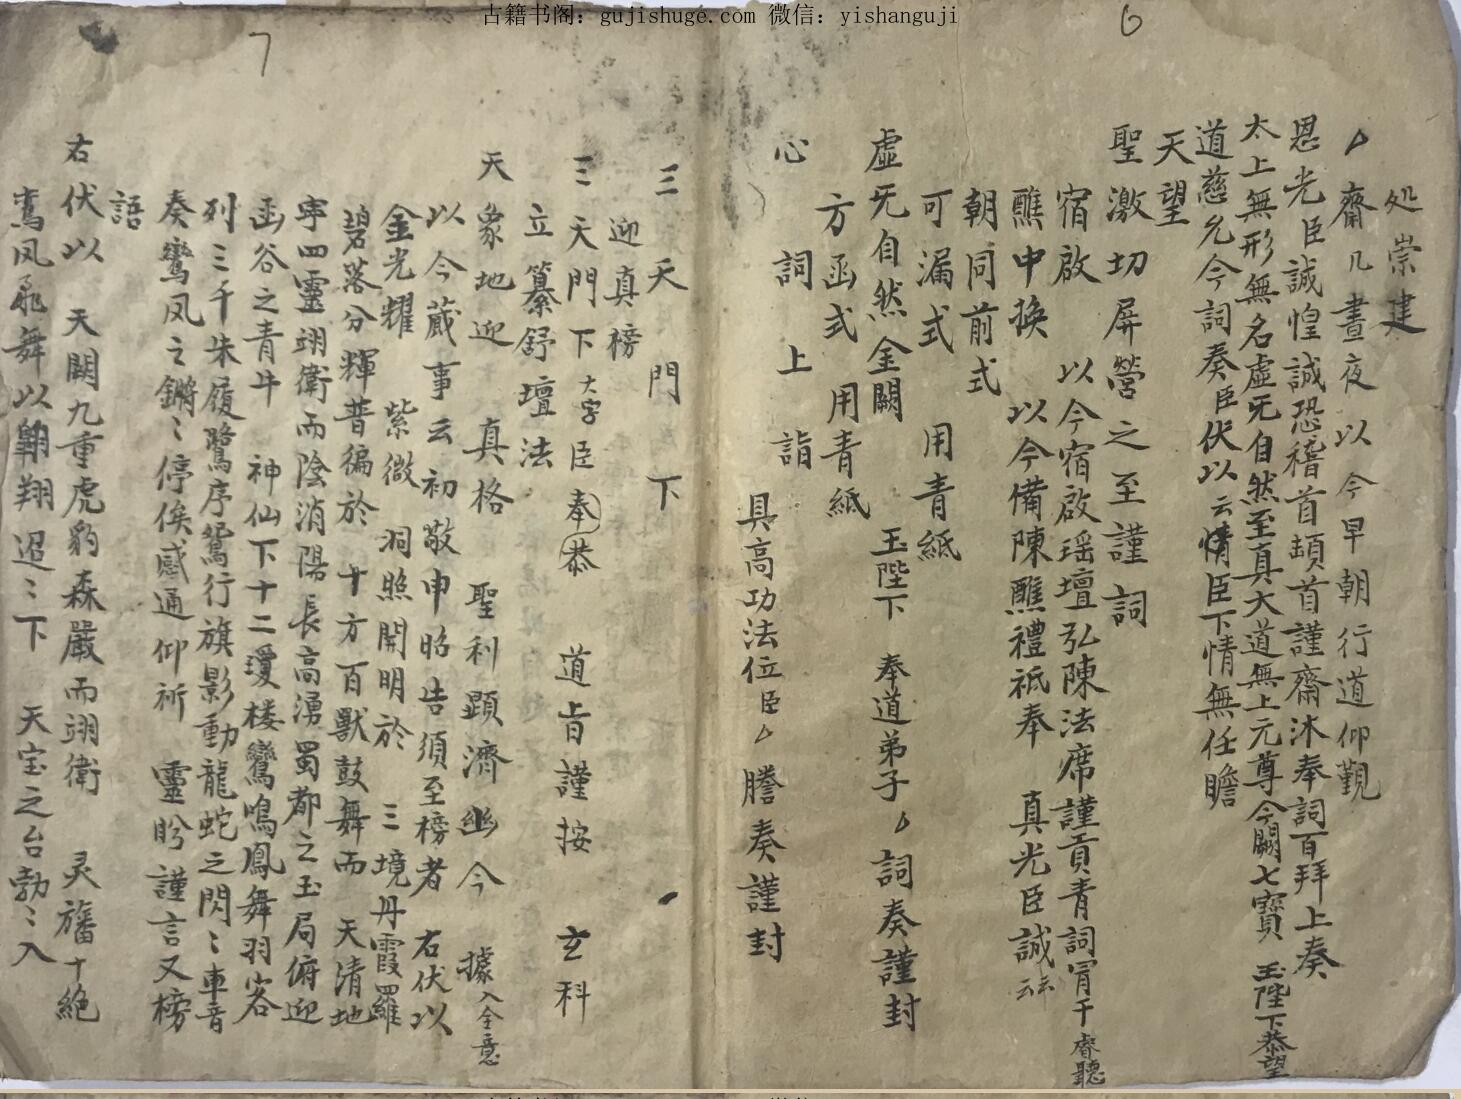 古籍书阁：gujishuge.com 微信：yishanguji
6
处崇建
厶齋几晝夜以今早朝行道仰覲
恩光臣誠惶誠恐稽首頓首謹齋沐奉詞百拜上奏
太上無形無名虛旡自然至真大道無上元尊今闕七寶 玉陛下恭望
道慈允今詞奏臣伏以云情臣下情無任瞻
天望
聖激切屏營之至謹詞
宿啟 以今宿啟瑶壇弘陳法席謹貢青詞冐干睿聽
醮中換 以今備陳醮禮祇奉 真光臣誠云
朝同前式
可漏式 用青紙
虛旡自然金闕 玉陛下 奉道弟子厶詞奏謹封
方函式 用青紙
心 詞 上 詣
具高功法位臣厶謄奏謹封
7
三天門下
迎真榜
三天門下大字臣奉恭 道旨謹按 玄科
立纂舒壇法
天象地迎 真格 聖利顕濟幽今 據入全意
以今蕆事云初敬申昭告須至榜者 右伏以
金光耀 紫微 洞照開明於 三境丹霞羅
碧落分輝普徧於 十方百獸鼓舞而 天清地
寕四靈翊衛而陰消陽長高湧蜀都之玉局俯迎
函谷之青牛 神仙下十二瓊楼鸞鳴鳳舞羽客
列三千朱履鷺序鴛行旗影動龍蛇之閃〻車音
奏鸞凤之鏘〻停俟感通仰祈 靈盻謹言又榜
語
右伏以 天闕九重虎豹森嚴而翊衛 灵旛十絶
鸞凤飛舞以翱翔迢〻下 天宝之台勃〻入